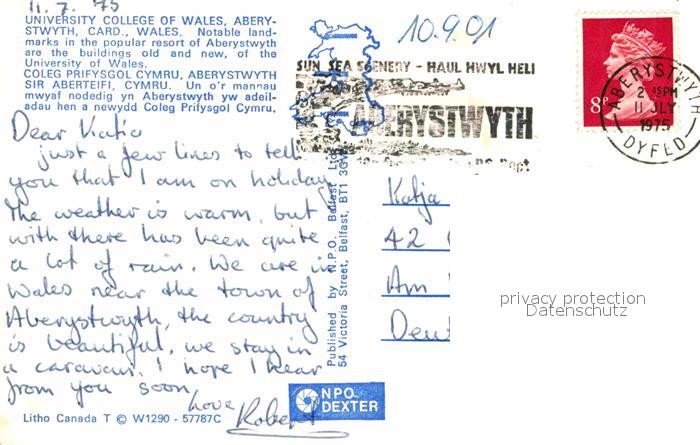 11.7.75
UNIVERSITY COLLEGE OF WALES, ABERY-
STWYTH, CARD., WALES. Notable land-
marks in the popular resort of Aberystwyth
are the buildings old and new, of the
University of Wales.
COLEG PRIFYSGOL CYMRU, ABERYSTWYTH
SIR ABERTEIFI, CYMRU. Un o'r mannau
mwyaf nodedig yn Aberystwyth yw adeil-
adau hen a newydd Coleg Prifysgol Cymru.
Dear Katja
just a few lines to tell
you that I am on holiday
the weather is warm, but
with there has been quite
a lot of rain. We are in
Wales near the town of
Aberystwyth, the country
is beautiful, we stay in
a caravan. I hope I hear
from you soon
Love
Robert
Litho Canada T © W1290 - 57787C
Published by N.P.O. Belfast Ltd
54 Victoria Street, Belfast, BT1 3GN
10.9.01
SUN SEA SCENERY - HAUL HWYL HELI
ABERYSTWYTH
8
ABERYSTWYTH
2 15PM
11 JLY
1975
DYFED
Katja
42
Am
Deu
privacy protection
Datenschutz
NPO
DEXTER